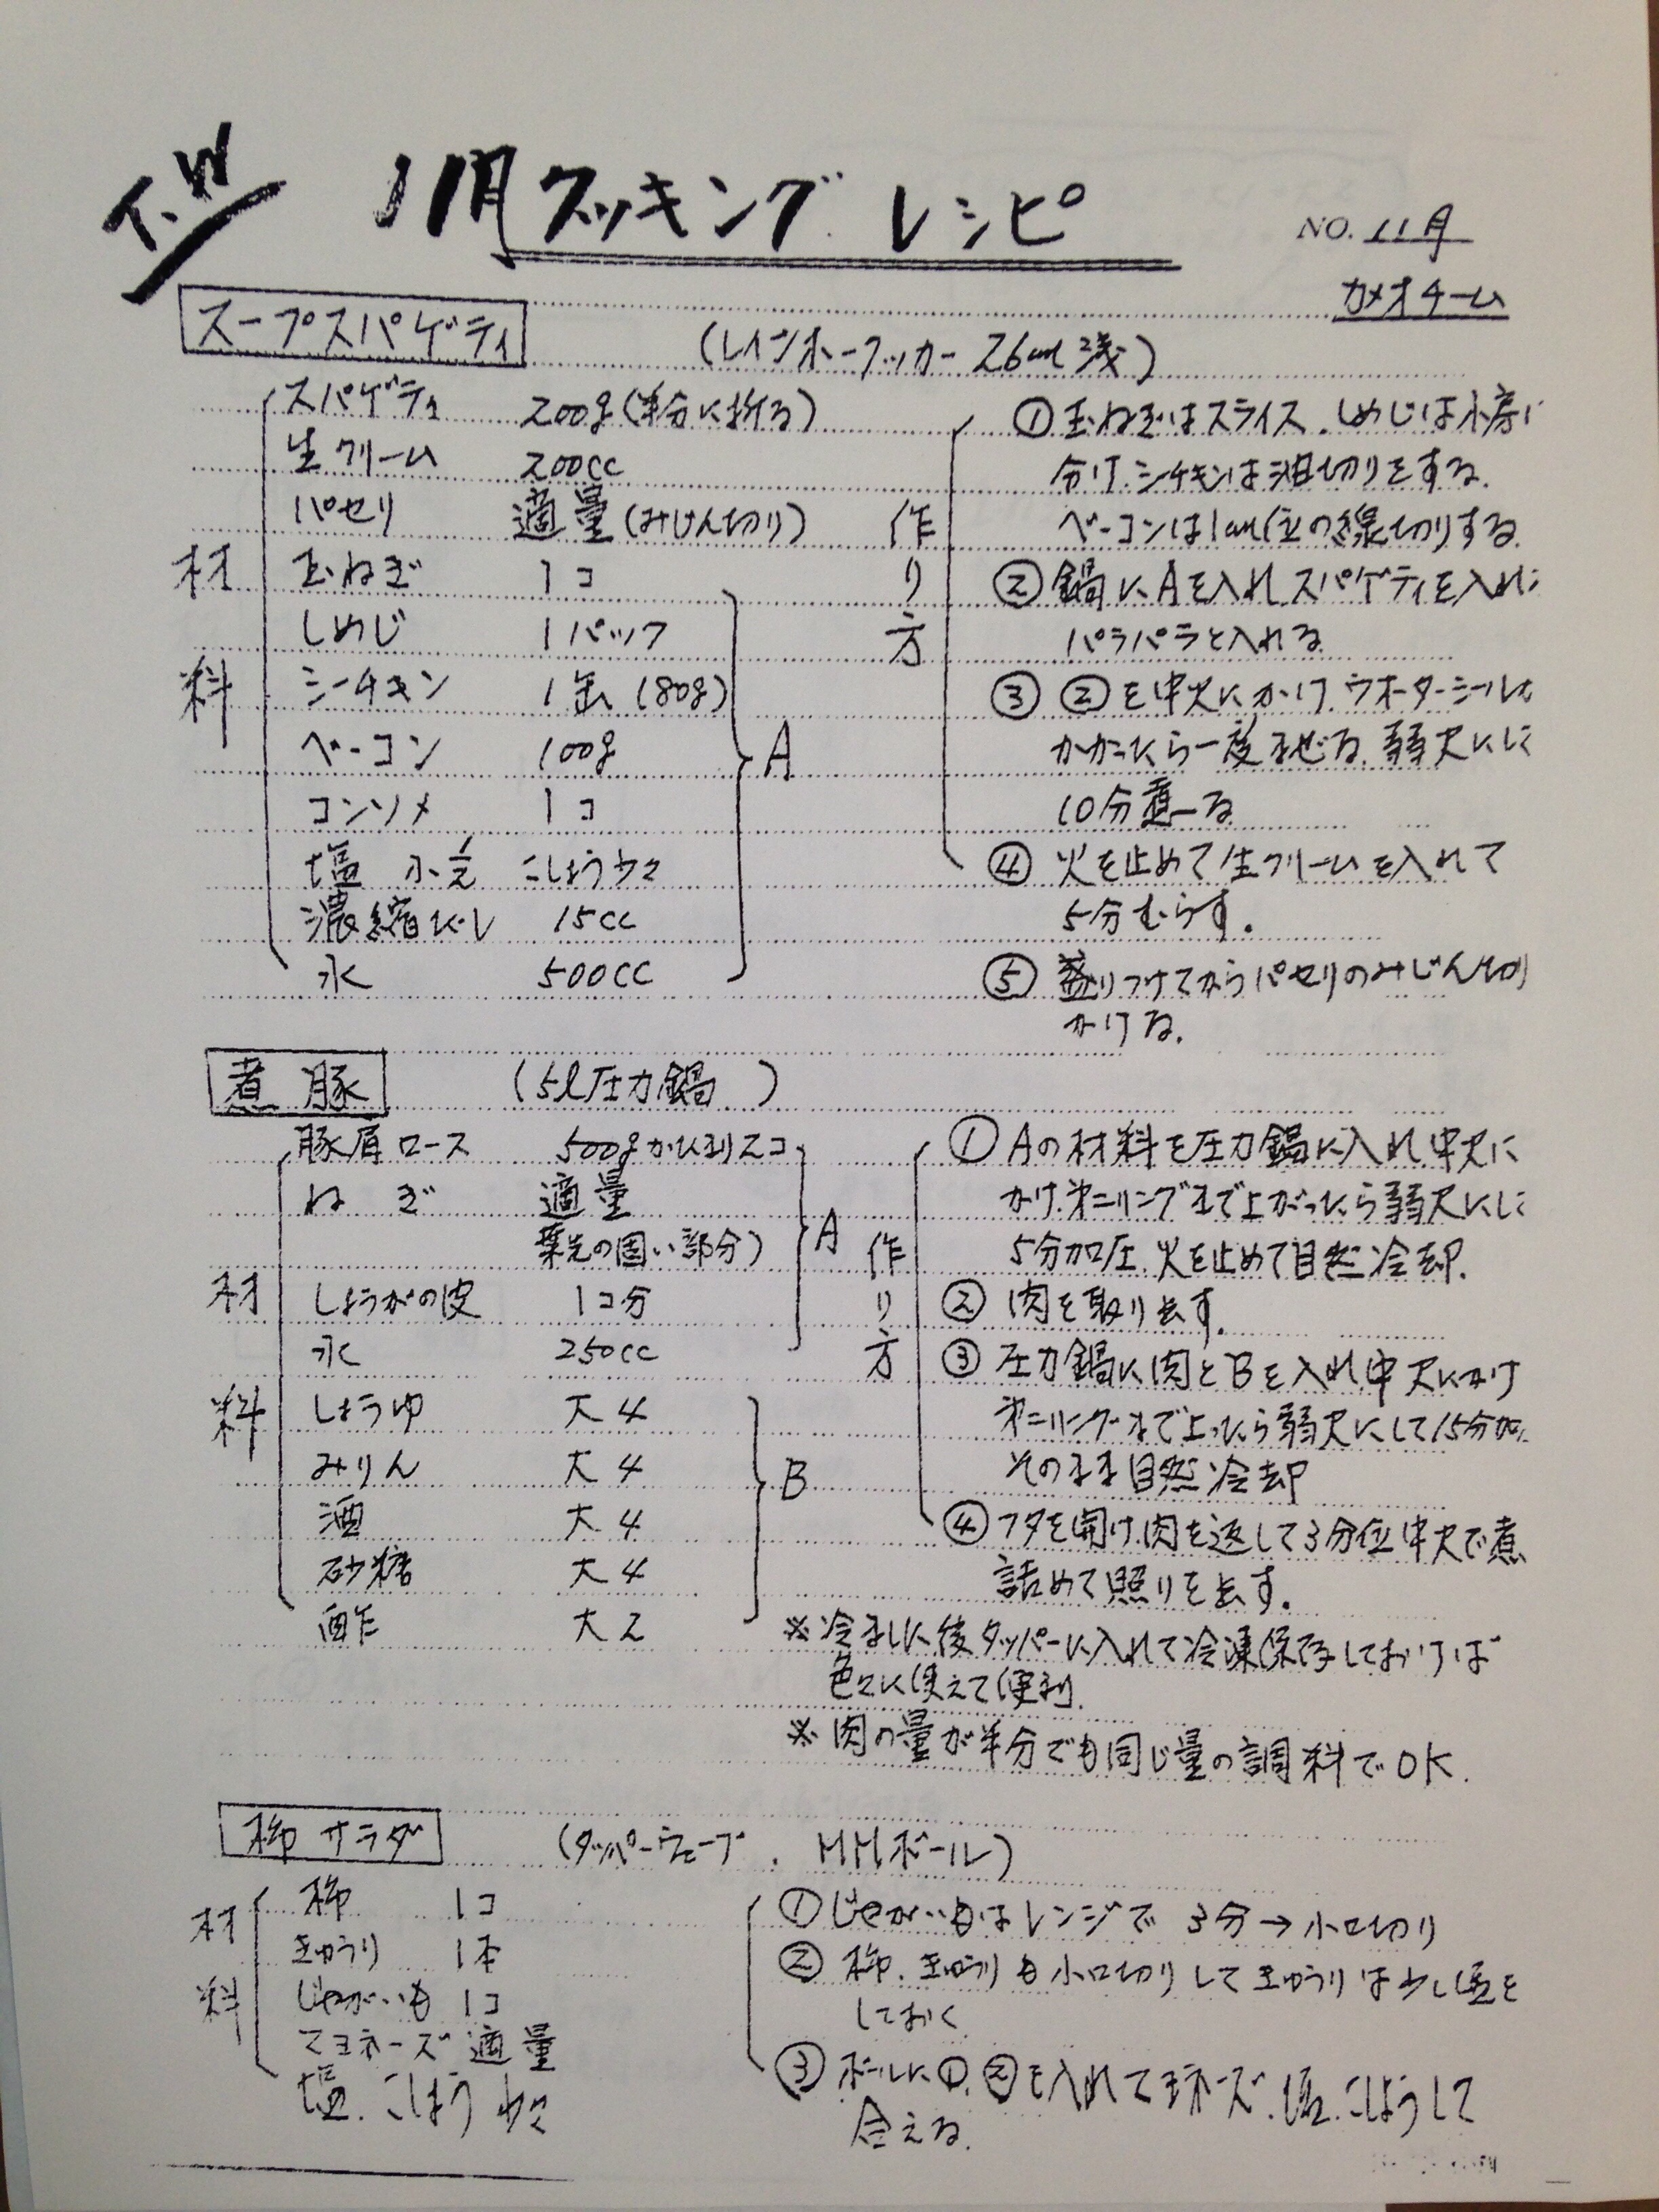 11月クッキングレシピ
NO. 11月
カメオチーム
スープスパゲティ
(レインボークッカー 26cm 浅)
材料
スパゲティ 200g(半分に折る)
生クリーム 200cc
パセリ 適量(みじん切り)
玉ねぎ 1コ
しめじ 1パック
シーチキン 1缶(80g)
ベーコン 100g
コンソメ 1コ
塩 小 こしょう少々
濃縮だし 15cc
水 500cc
A
作り方
①玉ねぎはスライス、しめじは小房に
分け、シチキンは油切りをする。
ベーコンは1cm位の線切りする。
②鍋にAを入れ、スパゲティを入れ
パラパラと入れる。
③ ②を中火にかけ、ウオーターシールが
かかったら一度まぜる。弱火にし
10分煮る
④ 火を止めて生クリームを入れて
5分むらす。
⑤ 盛りつけてからパセリのみじん切り
かける。
煮豚
(5ℓ圧力鍋 )
材料
豚肩ロース 500gかたまり2コ
ねぎ 適量
葉先の固い部分)
しょうがの皮 1コ分
水 250cc
A
しょうゆ 大4
みりん 大4
酒 大4
砂糖 大4
酢 大2
B
作り方
① Aの材料を圧力鍋に入れ、中火に
かけ、第二リングまで上がったら弱火にし
5分加圧、火を止めて自然冷却。
② 肉を取り出す。
③ 圧力鍋に肉とBを入れ、中火にかけ
第二リングまで上ったら弱火にして15分加
そのまま自然冷却
④フタを開け、肉を返して3分位中火で煮
詰めて照りを出す。
※冷ました後タッパーに入れて冷凍保存しておけば
色々に使えて便利。
※肉の量が半分でも同じ量の調料でOK.
柿サラダ
(タッパーウェーブ. MMボール)
材料
柿 1コ
きゅうり 1本
じゃがいも 1コ
マヨネーズ 適量
塩、こしょう 少々
①じゃがいもはレンジで3分→小口切り
② 柿、きゅうりも小口切りしてきゅうりは少し塩を
しておく
③ボールに①、②を入れてマヨネーズ、塩、こしょうして
合える。